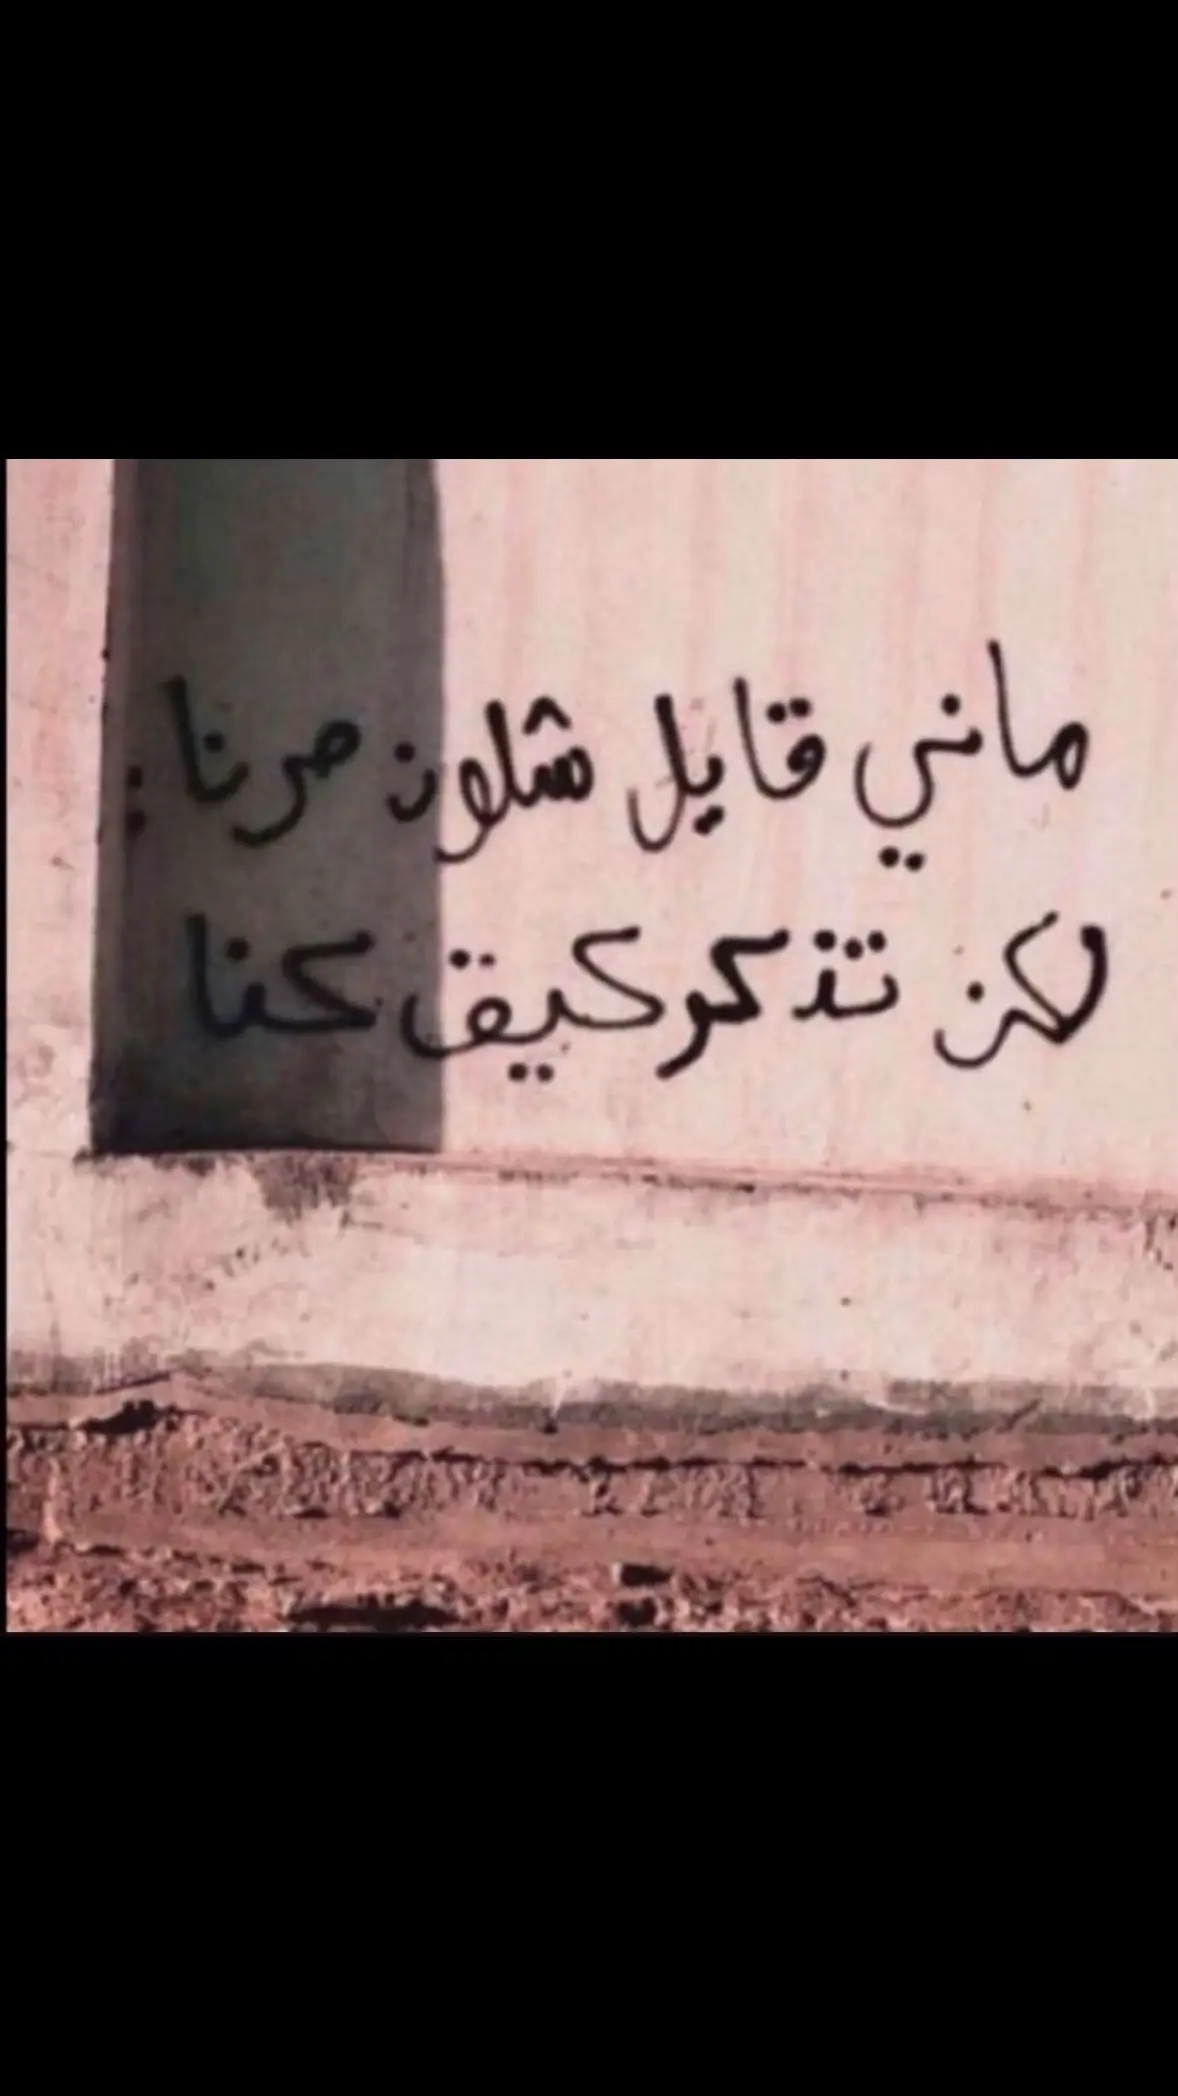 ماني قايل شلون صرنا :
لكن تذكر كيف كنا